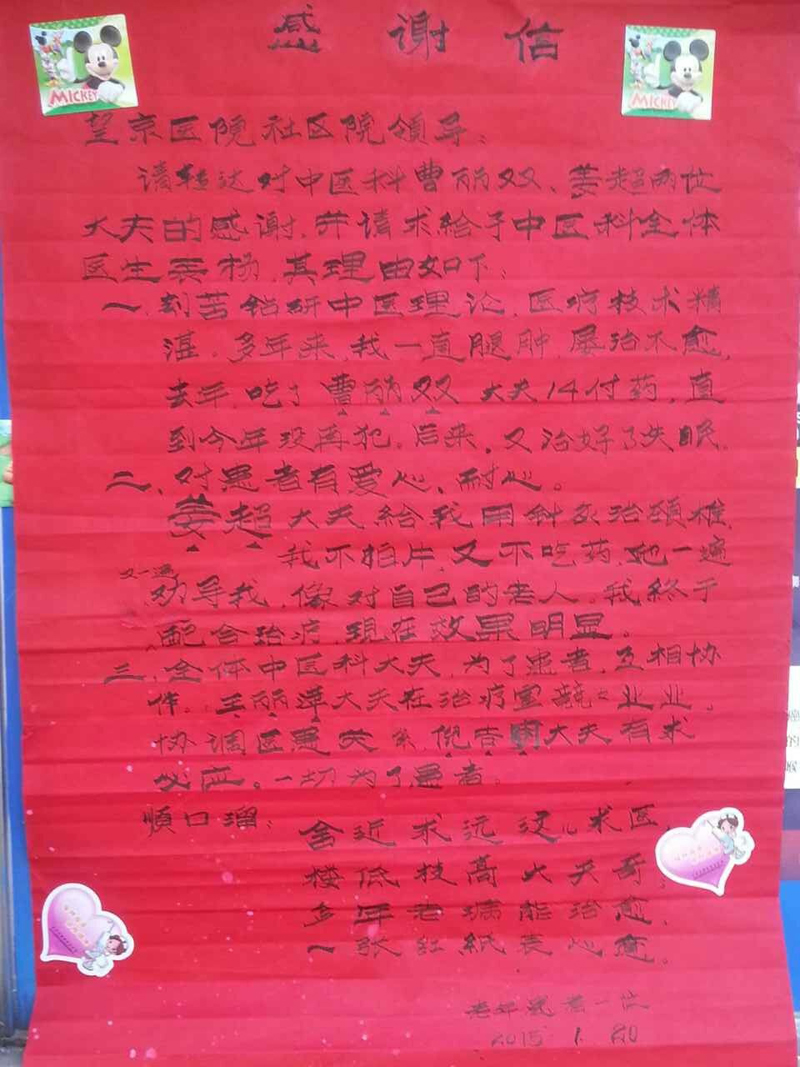 感谢信
MICKEY
MICKEY
望京医院社区院领导：
请转达对中医科曹丽双、姜超两位
大夫的感谢，并请求给予中医科全体
医生表扬，其理由如下：
一、刻苦钻研中医理论，医疗技术精
湛。多年来，我一直腿肿，屡治不愈，
去年，吃了曹丽双大夫14付药，直
到今年没再犯。后来，又治好了失眠。
二、对患者有爱心、耐心。
姜超大夫給我用针灸治颈椎，
我不拍片，又不吃药，她一遍
又一遍
劝导我，像对自己的老人。我終于
配合治疗，現在效果明显。
三、全体中医科大夫，为了患者，互相协
作。王丽萍大夫在治疗室兢兢业业，
协调医患关系，倪杏大夫有求
必应。一切为了患者。
順口溜：
舍近求远这儿求医，
楼低技高大夫奇，
多年老病能治愈，
一张红紙表心意。
老年患者一位
2015 1. 20